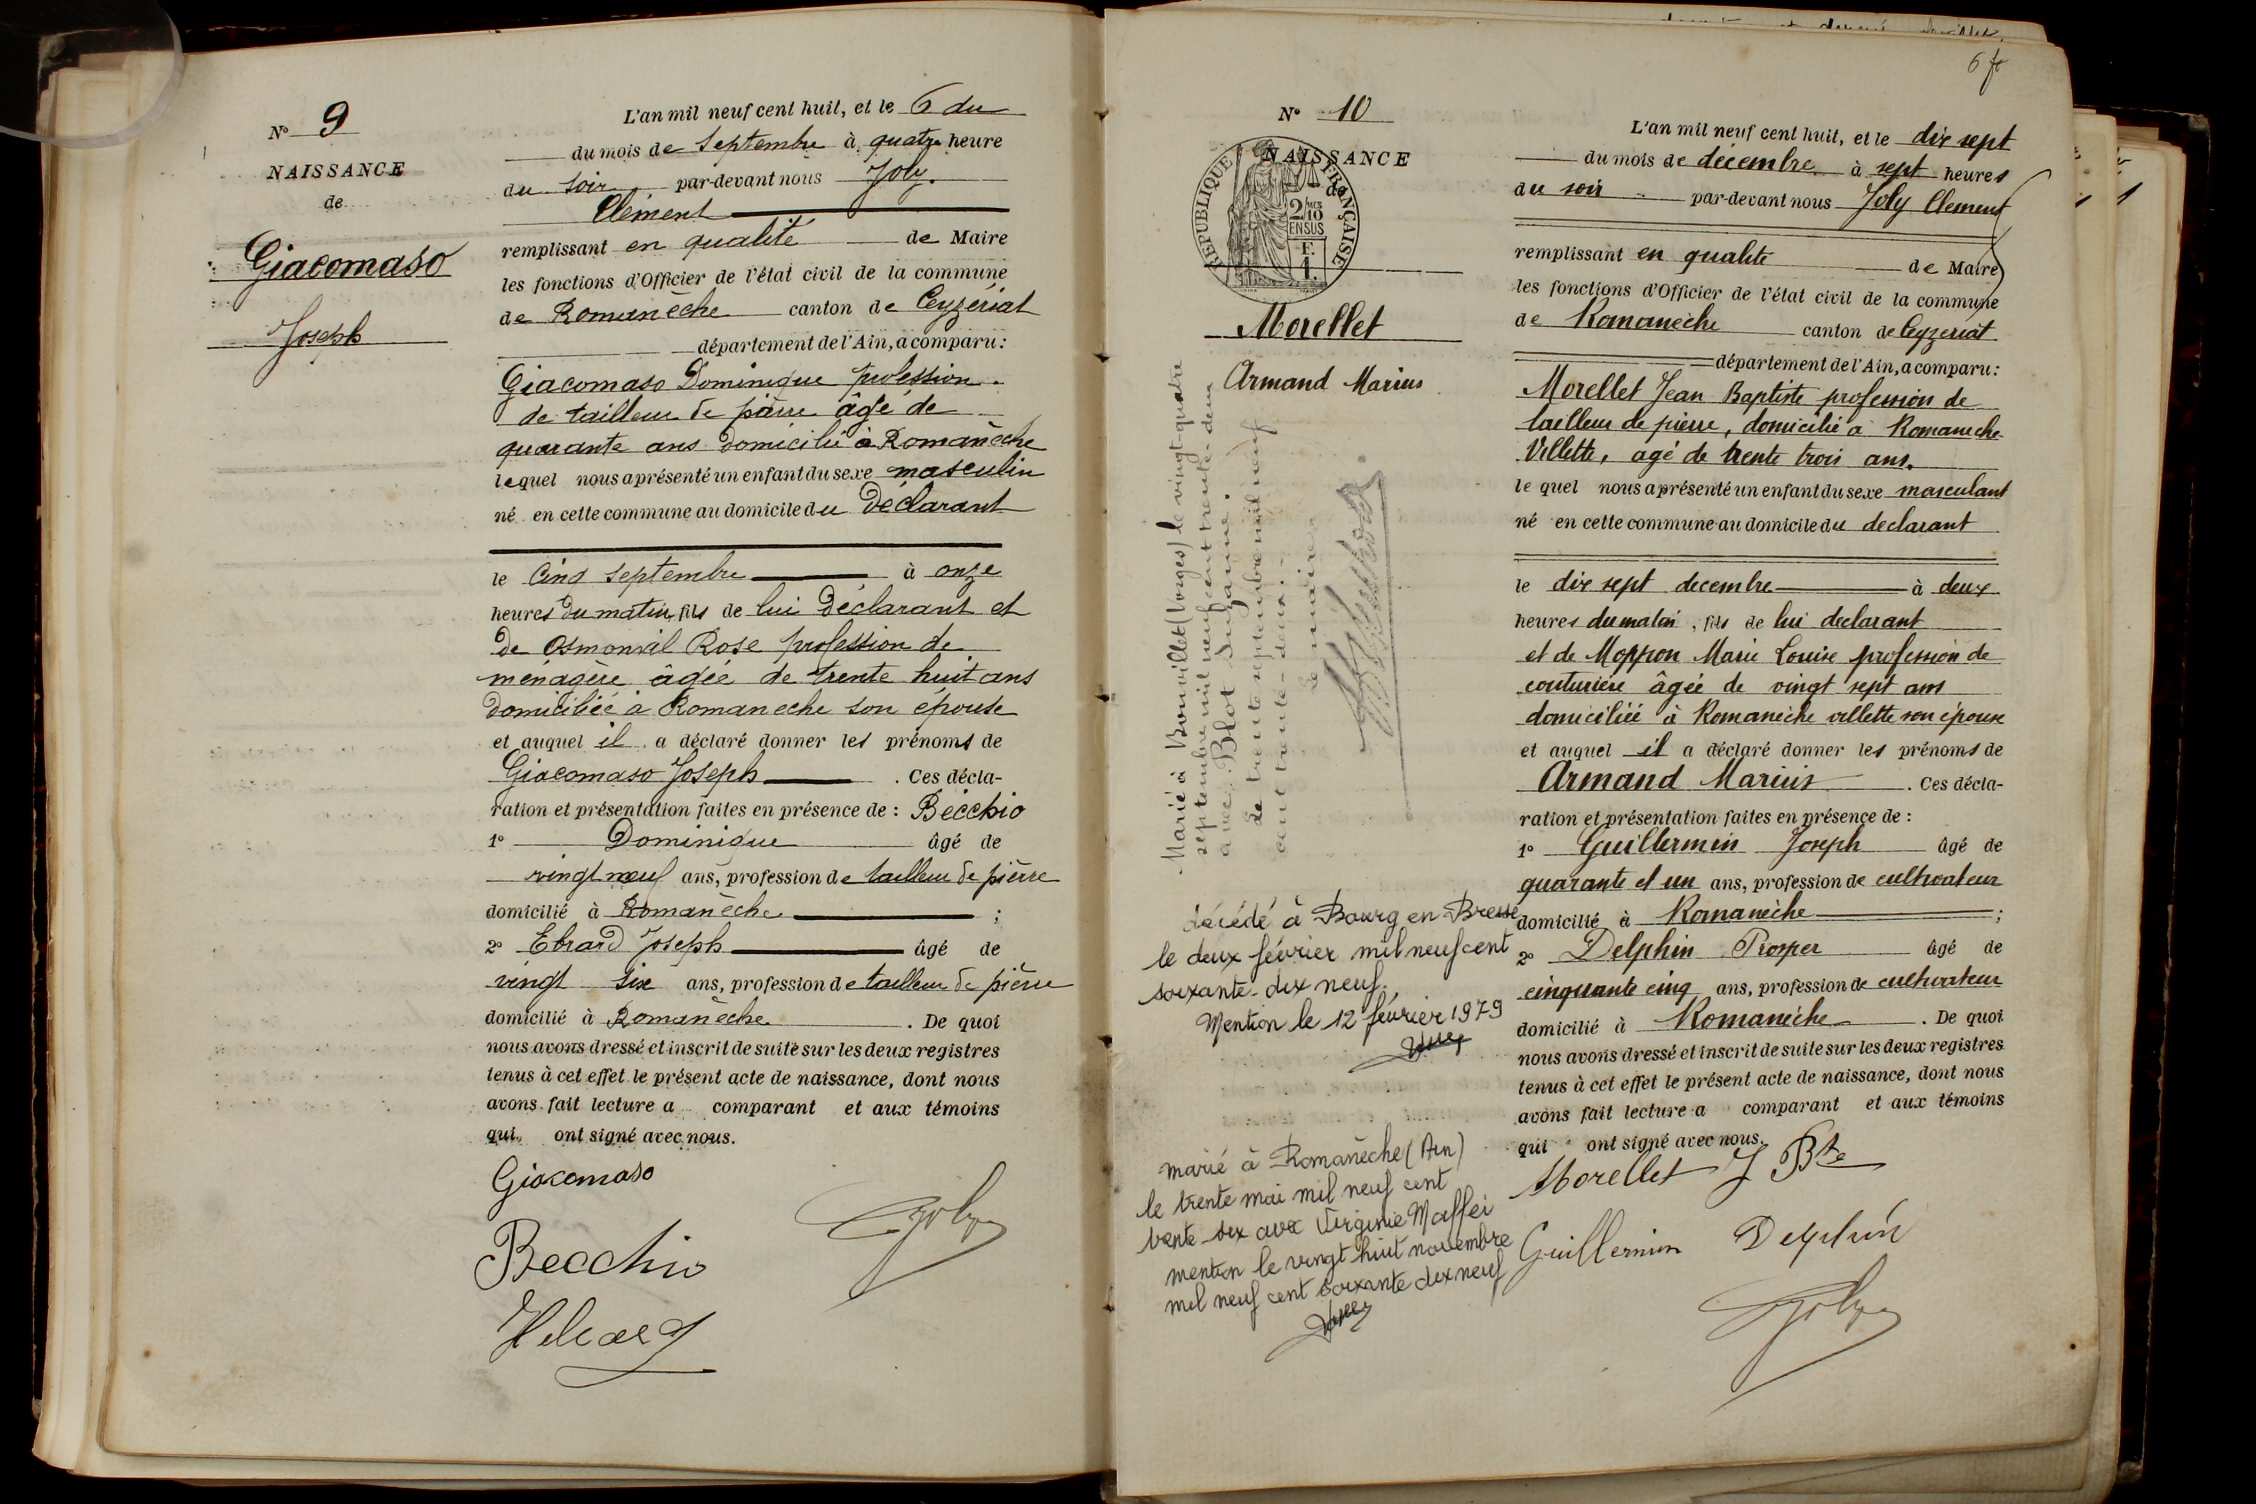 N° 9
NAISSANCE
de
Giacomaso
Joseph
L'an mil neuf cent huit, et le 6 du
du mois de septembre à quatre heure
du soir par-devant nous Joly
Clément
remplissant en qualité de Maire
les fonctions d'Officier de l'état civil de la commune
de Romanèche canton de Ceyzériat
département de l'Ain, a comparu:
Giacomaso Dominique profession
de tailleur de pierre âgé de
quarante ans domicilié à Romanèche
lequel nous a présenté un enfant du sexe masculin
né en cette commune au domicile du Déclarant
le Cinq septembre à onze
heures du matin, fils de lui Déclarant et
De Osmonval Rose profession de
ménagère âgée de trente huit ans
Domiciliée à Romaneche son épouse
et auquel il a déclaré donner les prénoms de
Giacomaso Joseph . Ces décla-
ration et présentation faites en présence de : Becchio
1° Dominique âgé de
vingt neuf ans, profession de tailleur de pierre
domicilié à Romanèche ;
2° Ebrard Joseph âgé de
vingt six ans, profession de tailleur de pierre
domicilié à Romanèche . De quoi
nous avons dressé et inscrit de suite sur les deux registres
tenus à cet effet le présent acte de naissance, dont nous
avons fait lecture a comparant et aux témoins
qui ont signé avec nous.
Giacomaso
Joly
Becchio
6 f
N° 10
NAISSANCE
de
RÉPUBLIQUE FRANÇAISE
2/10
EN SUS
F.
1.
Morellet
Armand Marius
Marié à Bonvillet (Vosges) le vingt-quatre
septembre mil neuf cent trente-deux
avec Blot Suzanne.
Le trente septembre mil neuf
cent trente-deux.-
Le maire
décédé à Bourg en Bresse
le deux février mil neuf cent
soixante-dix neuf.
Mention le 12 février 1979
marié à Romanèche (Ain)
le trente mai mil neuf cent
trente-six avec Virginie Maffei
mention le vingt huit novembre
mil neuf cent soixante dix neuf
L'an mil neuf cent huit, et le dix sept
du mois de décembre à sept heures
du soir par-devant nous Joly Clement
remplissant en qualité de Maire
les fonctions d'Officier de l'état civil de la commune
de Romanèche canton de Ceyzeriat
département de l'Ain, a comparu:
Morellet Jean Baptiste profession de
tailleur de pierre, domicilié à Romaneche
Villette, agé de trente trois ans.
le quel nous a présenté un enfant du sexe masculant
né en cette commune au domicile du declarant
le dix sept decembre à deux
heures du matin, fils de lui declarant
et de Marie Louise profession de
couturière âgée de vingt sept ans
domiciliée à Romanèche villette son épouse
et auquel il a déclaré donner les prénoms de
Armand Marius . Ces décla-
ration et présentation faites en présence de :
1° Guillermin Joseph âgé de
quarante et un ans, profession de cultivateur
domicilié à Romanèche ;
2° Delphin Prosper âgé de
cinquante cinq ans, profession de cultivateur
domicilié à Romanèche . De quoi
nous avons dressé et inscrit de suite sur les deux registres
tenus à cet effet le présent acte de naissance, dont nous
avons fait lecture a comparant et aux témoins
qui ont signé avec nous.
Morellet J Bte
Guillermin Delphin
Joly